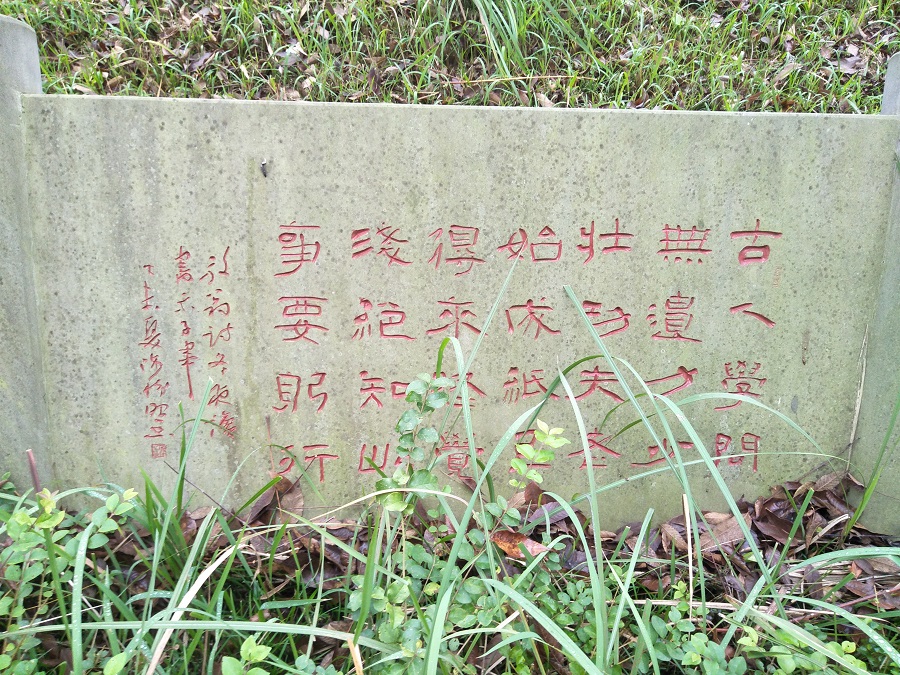 古人學問
無遺力少
壯功夫老
始成紙上
得來終覺
淺絕知此
事要躬行
放翁詩冬夜讀
書示子聿
丁亥夏